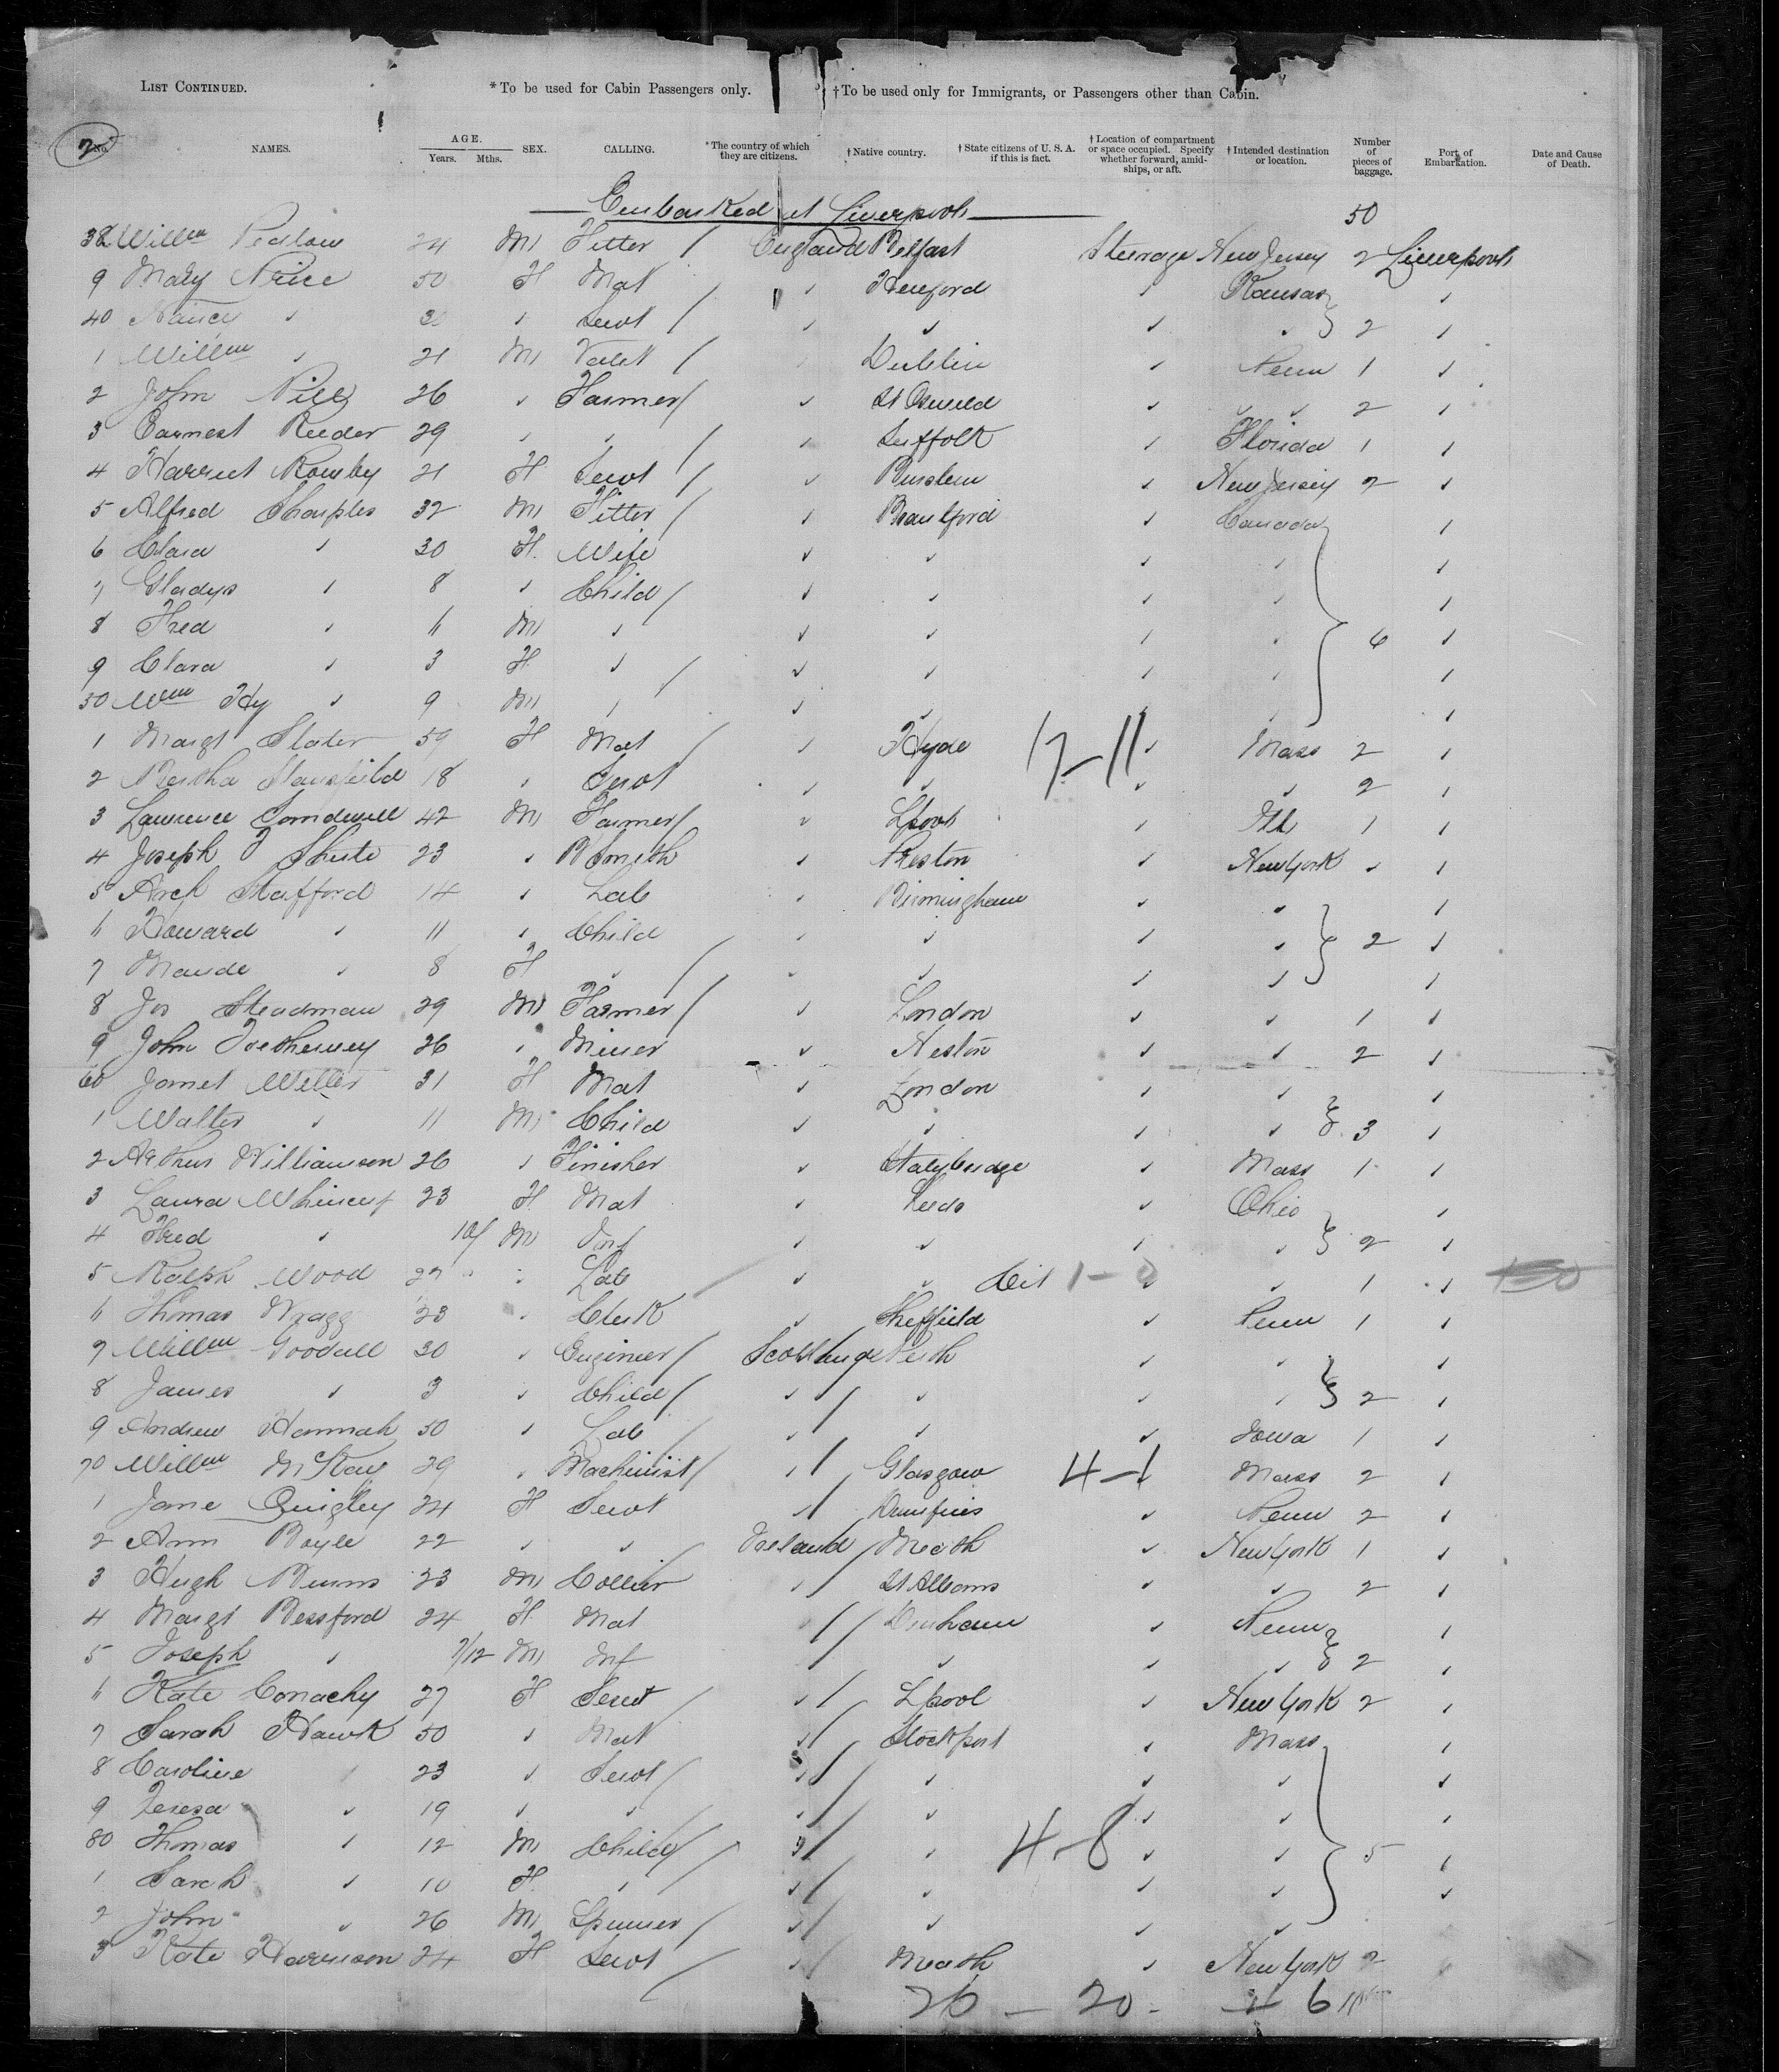 LIST CONTINUED. *To be used for Cabin Passengers only. †To be used only for Immigrants, or Passengers other than Cabin.
2 No. NAMES. AGE. Years. Mths. SEX. CALLING. *The country of which they are citizens. †Native country. †State citizens of U. S. A. if this is fact. †Location of compartment or space occupied. Specify whether forward, amidships, or aft. †Intended destination or location. Number of pieces of baggage. Port of Embarkation. Date and Cause of Death.
Embarked at Liverpool 50
38 Willm 24 M Fitter / England Belfast Steerage New Jersey 2 Liverpool
9 Mary Price 50 F Mat / ✓ Hereford ✓ Kansas ✓
40 Nancy ✓ ✓ Servt / ✓ ✓ ✓ ✓ 2 ✓
1 Willm ✓ 21 M Valet / Dublin ✓ Penn 1 ✓
2 John 26 ✓ Farmer / ✓ St Oswald ✓ ✓ 2 ✓
3 Earnest Reeder 29 ✓ ✓ / ✓ Suffolk ✓ Florida 1 ✓
4 Harriet Rowley 21 F Servt / ✓ Burslem ✓ New Jersey 2 ✓
5 Alfred Sharples 32 M Fitter / ✓ ✓ Canada ✓
6 Clara ✓ 30 F Wife ✓ ✓ ✓ ✓ ✓
7 Gladys ✓ 8 ✓ Child / ✓ ✓ ✓ ✓ ✓
8 Fred ✓ 6 M ✓ ✓ ✓ ✓ ✓ 6 ✓
9 Clara ✓ 3 F ✓ / ✓ ✓ ✓ ✓ ✓
50 Wm Hy ✓ 9 M ✓ / ✓ ✓ ✓ ✓ ✓
1 Margt Slater 59 F Mat / ✓ Hyde 17-11 ✓ Mass 2 ✓
2 Bertha Stansfield 18 ✓ Servt ✓ ✓ ✓ ✓ 2 ✓
3 Lawrence 42 M Farmer / ✓ Lpool ✓ Ill 1 ✓
4 Joseph Shute 23 ✓ B Smith ✓ Preston ✓ New York ✓ ✓
5 Arch Stafford 14 ✓ Lab ✓ Birmingham ✓ ✓ ✓
6 Howard ✓ 11 ✓ Child ✓ ✓ ✓ ✓ 2 ✓
7 Maude ✓ 8 F ✓ / ✓ ✓ ✓ ✓ ✓
8 Jos Steadman 29 M Farmer / ✓ London ✓ ✓ 1 ✓
9 John Trethewey 26 ✓ Miner ✓ Neston ✓ ✓ 2 ✓
60 Janet Weller 31 F Mat ✓ London ✓ ✓ ✓
1 Walter ✓ 11 M Child ✓ ✓ ✓ ✓ 3 ✓
2 Arthur Williamson 26 ✓ Finisher ✓ Stalybridge ✓ Mass 1 ✓
3 Laura 23 F Mat ✓ Leeds ✓ Ohio ✓
4 Fred ✓ M Inf ✓ ✓ ✓ ✓ 2 ✓
5 Ralph Wood 27 ✓ Lab / ✓ ✓ Cit 1-0 ✓ ✓ 1 ✓
6 Thomas Wragg 23 ✓ Clerk ✓ Sheffield ✓ Penn 1 ✓
7 Willm Goodall 30 ✓ Engineer / Scotland Perth ✓ ✓ ✓
8 James ✓ 3 ✓ Child / ✓ / ✓ ✓ ✓ 2 ✓
9 Andrew Hannah 50 ✓ Lab / ✓ ✓ ✓ Iowa 1 ✓
70 Willm McKay 29 ✓ Machinist / ✓ / Glasgow 4-1 Mass 2 ✓
1 Jane Quigley 24 F Servt ✓ / Dumfries ✓ Penn 2 ✓
2 Ann Boyle 22 ✓ ✓ Ireland / Meath ✓ New York 1 ✓
3 Hugh Burns 23 M Collier ✓ / St Albans ✓ ✓ 2 ✓
4 Margt Bessford 24 F Mat ✓ / Durham ✓ Penn ✓
5 Joseph ✓ 7/12 M Inf ✓ / ✓ ✓ ✓ 2 ✓
6 Kate Conachy 27 F Servt / ✓ / Lpool ✓ New York 2 ✓
7 Sarah Hawk 50 ✓ Mat ✓ / Stockport ✓ Mass ✓
8 Caroline 23 ✓ Servt / ✓ / ✓ ✓ ✓ ✓
9 Teresa ✓ 19 ✓ ✓ ✓ / ✓ ✓ ✓ ✓
80 Thomas ✓ 12 M Child / ✓ / ✓ 4-8 ✓ ✓ 5 ✓
1 Sarah ✓ 10 F ✓ / ✓ / ✓ ✓ ✓ ✓
2 John ✓ 26 M Spinner / ✓ / ✓ ✓ ✓
3 Kate Harrison 24 F Servt / ✓ / Meath ✓ New York 2
26 - 20 - 6